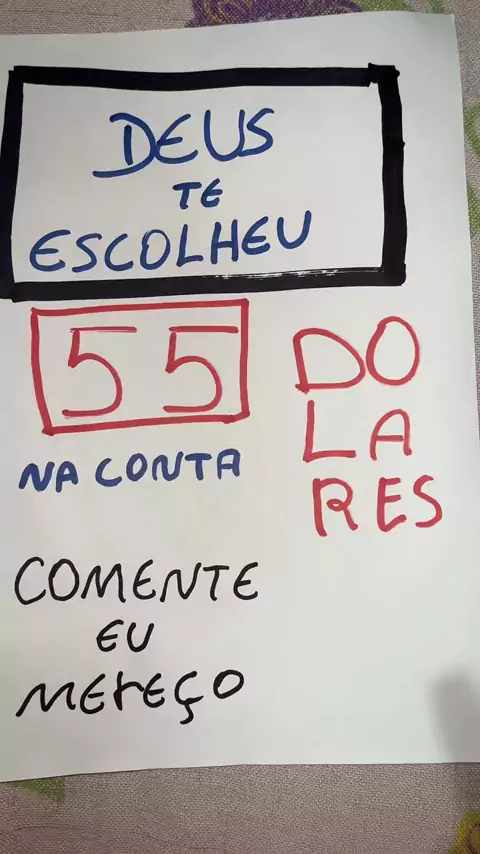 DEUS
TE
ESCOLHEU
55
DO
LA
RES
NA CONTA
COMENTE
EU
MEREÇO